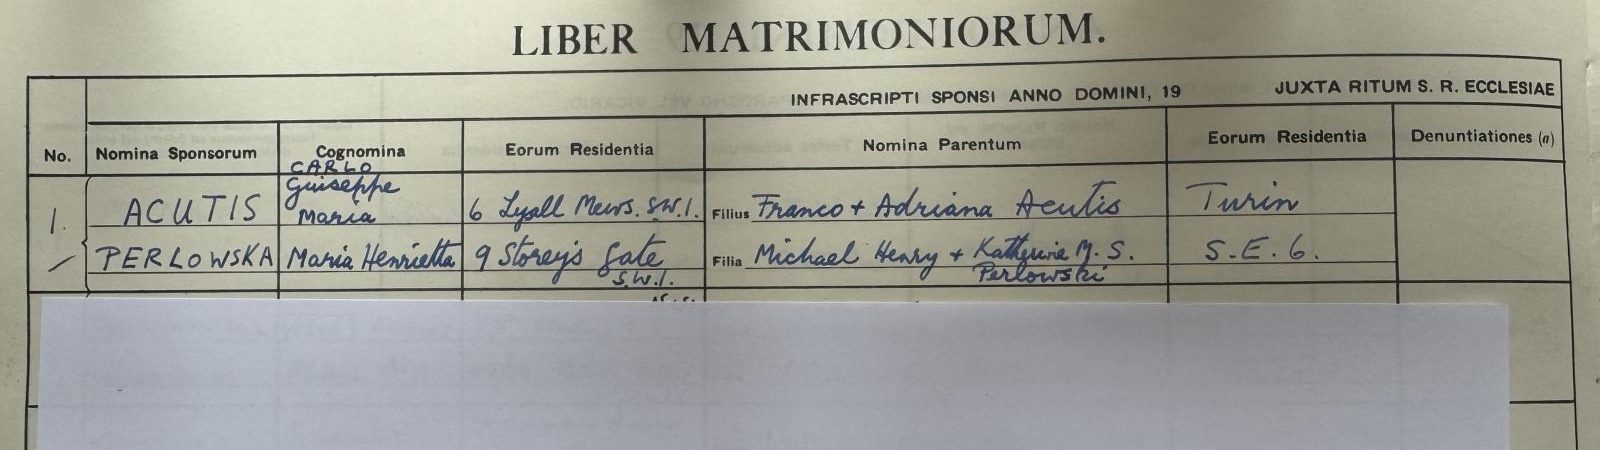 LIBER MATRIMONIORUM.
INFRASCRIPTI SPONSI ANNO DOMINI, 19 JUXTA RITUM S. R. ECCLESIAE
No. Nomina Sponsorum Cognomina Eorum Residentia Nomina Parentum Eorum Residentia Denuntiationes (a)
CARLO
Guiseppe
1. ACUTIS Maria 6 Lyall Mews. S.W.1. Filius Franco + Adriana Acutis Turin
PERLOWSKA Maria Henrietta 9 Storey's Gate Filia Michael Henry + Katherine M. S. S.E.6.
S.W.1. Perlowski